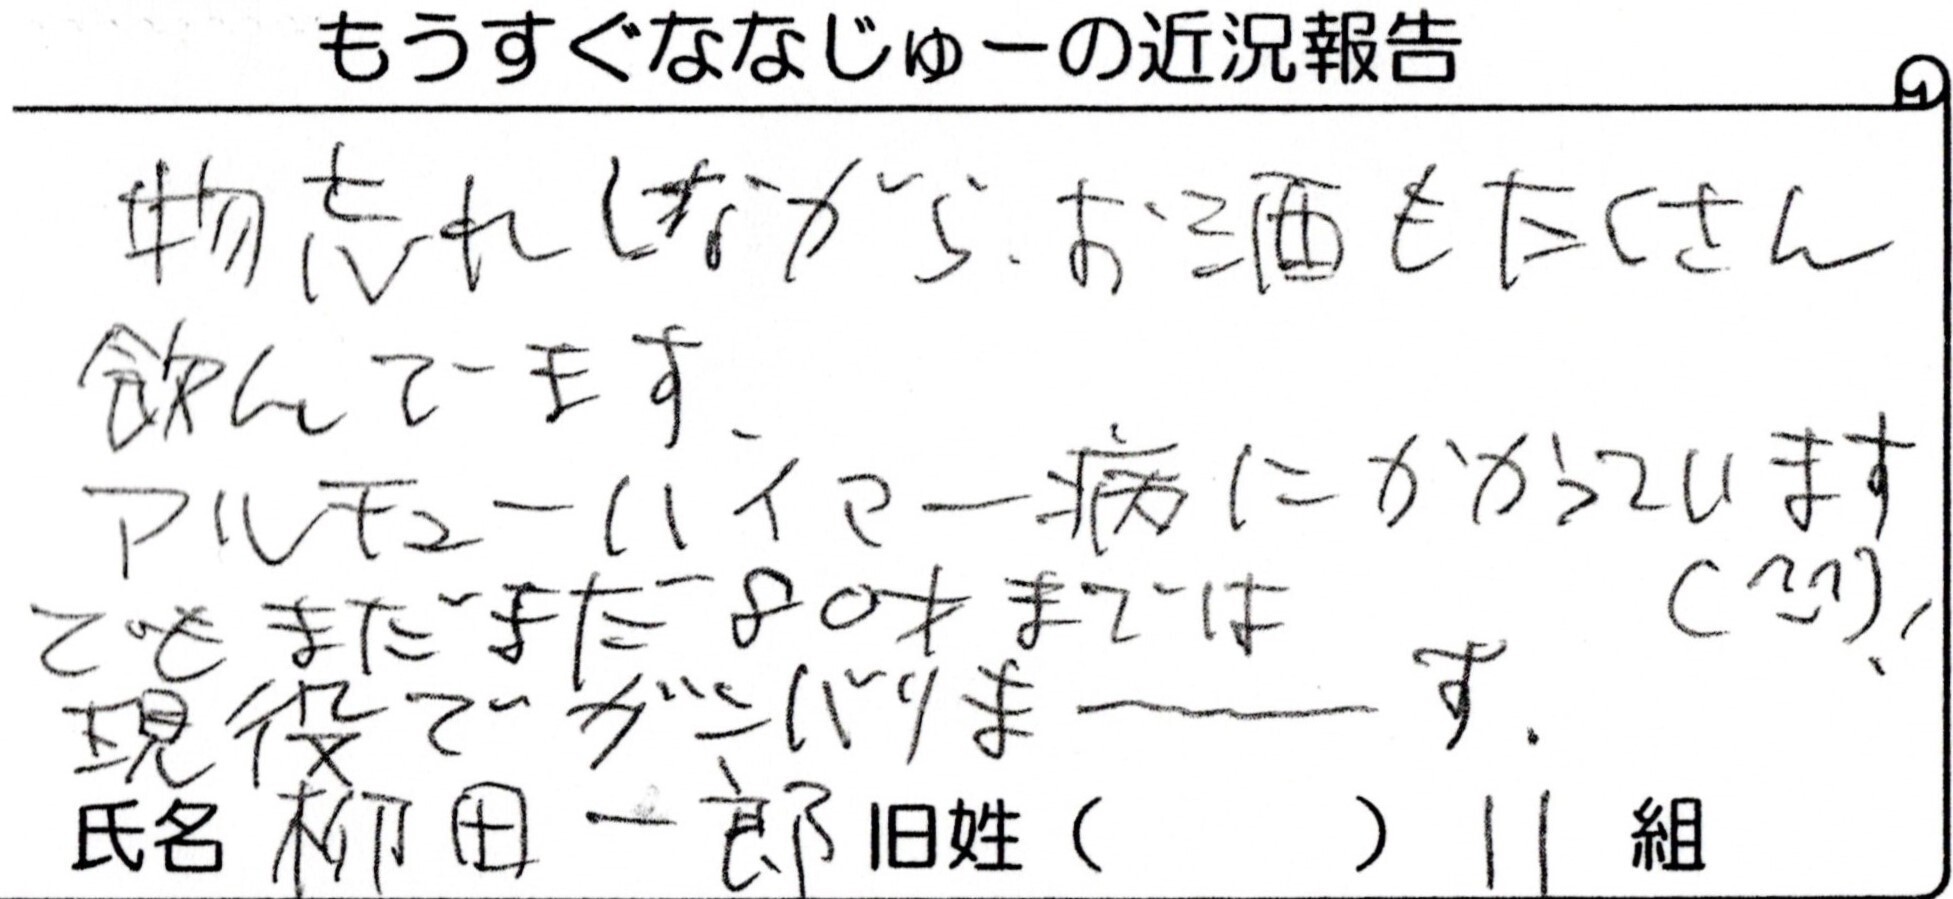 もうすぐななじゅーの近況報告
物忘れしながら、お酒もたくさん
飲んでます、
アルチューハイマー病にかかっています
(^^)!
でもまだまだ80才までは
現役でガンバリまーーす.
氏名 柳田一郎 旧姓 ( ) 11 組